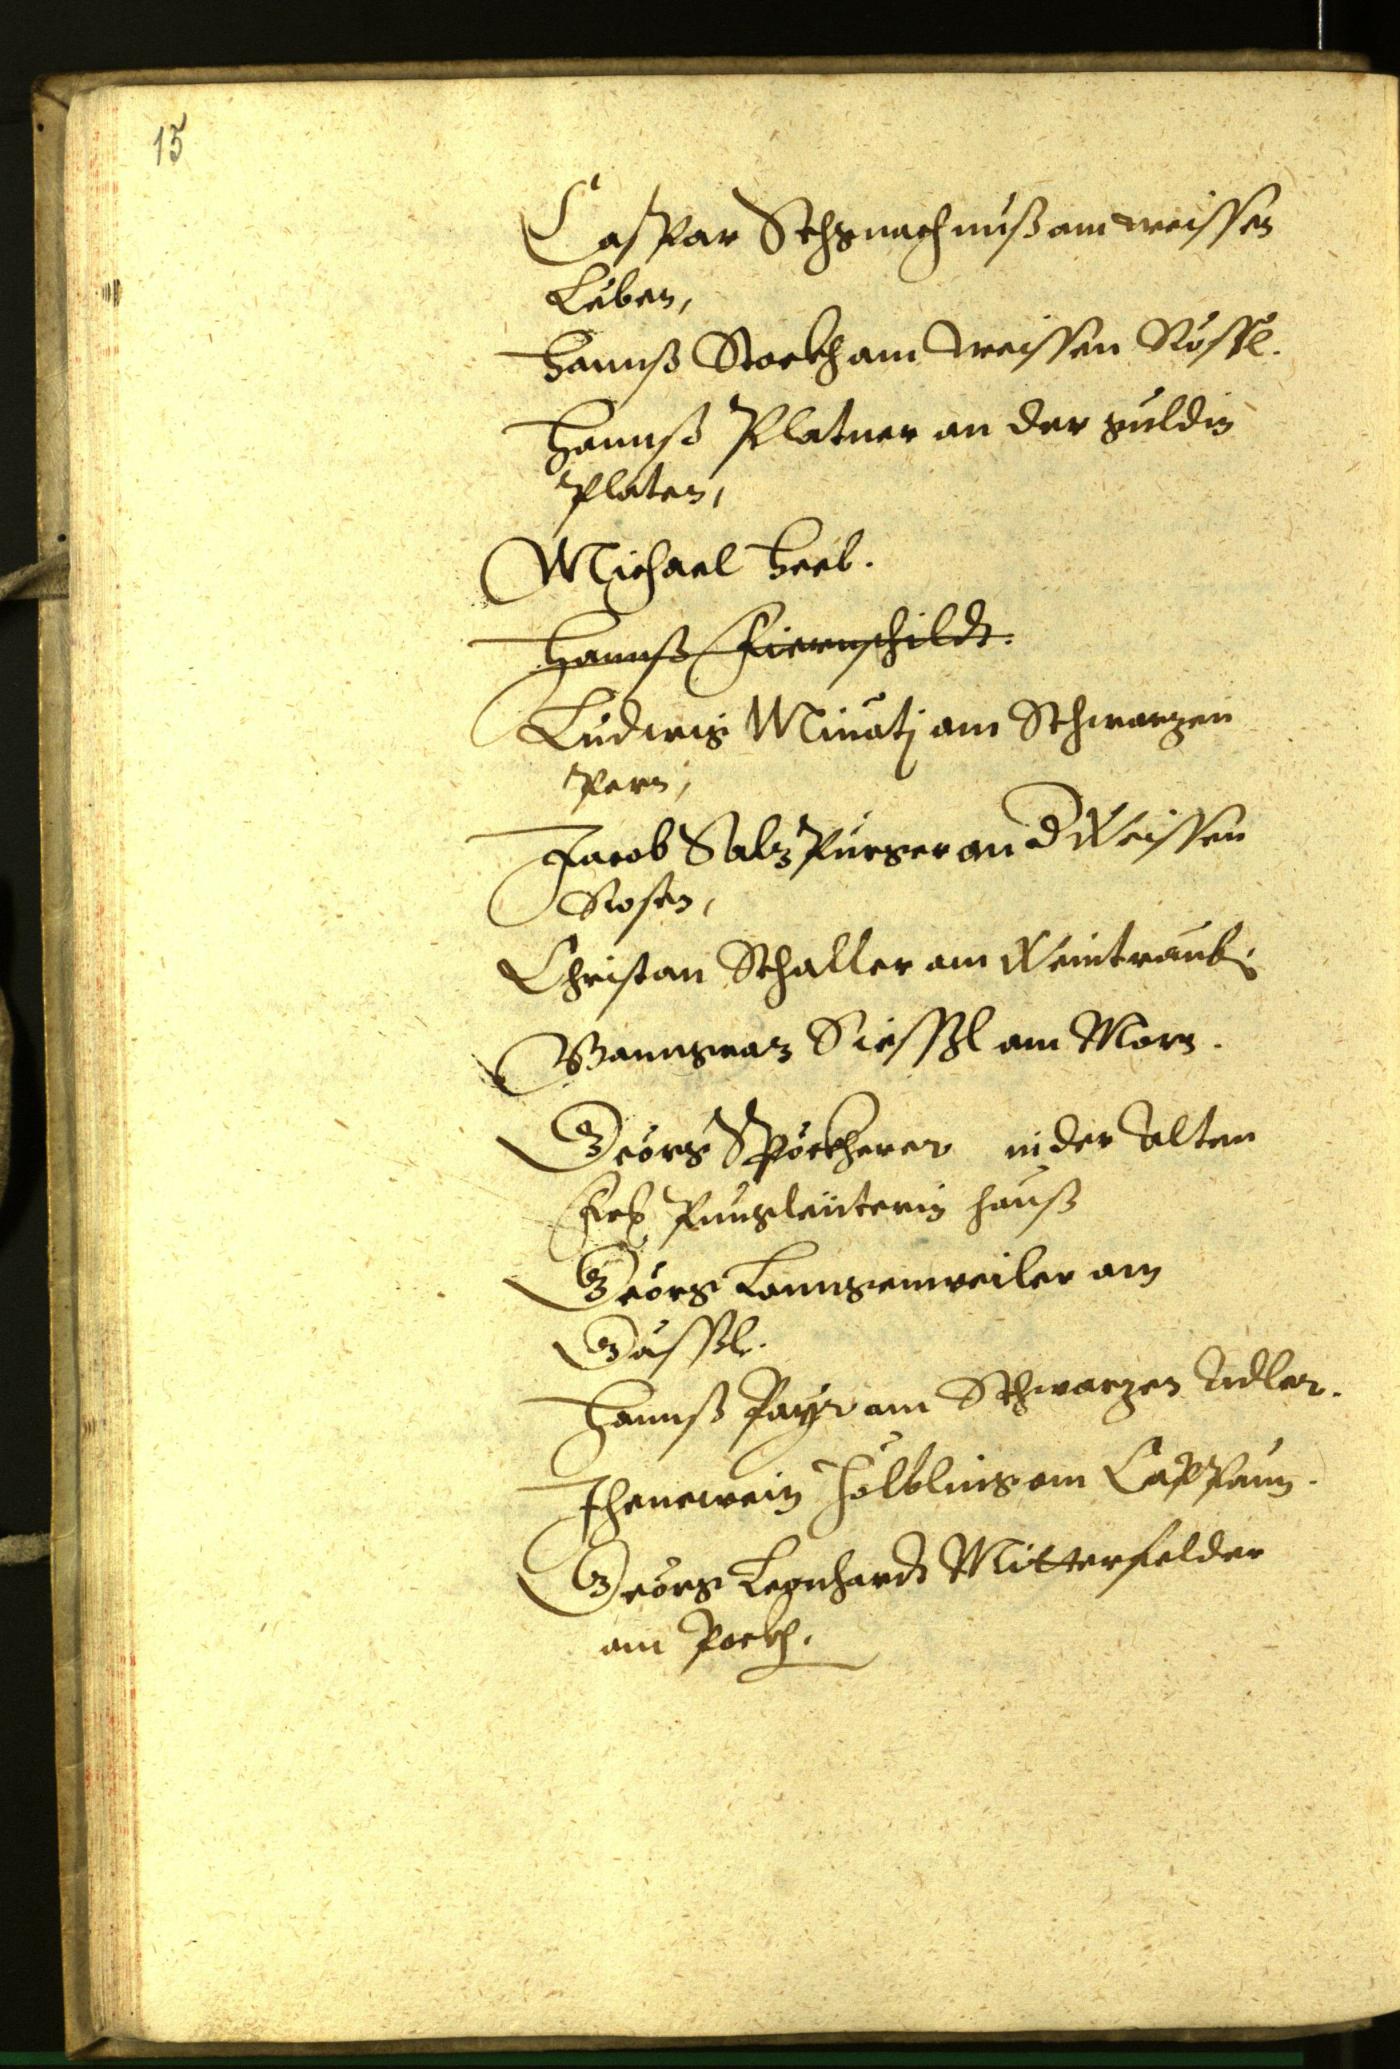 15
Caspar Schgnachnuß am weissen
Leben,
Hannß Stockh am weissen Rössl.
Hannß Platner an der guldin
Platen,
Michael Heel.
Hannß Hiernschildt.
Ludwig Minatj am Schwarzen
Pern,
Jacob Salzpurger an d Weissen
Rosen,
Christan Schaller am Weintraub.
Panngraz Siessl am Morn.
Georg Spöckherer in der Alten
Pungleüterin hauß
Georg Langenweiler am
Gässl.
Hannß Payr am Schwarzen Adler.
Jhenewein Hölbling am Cappaun.
Georg Leonhardt Mitterfelder
am Pockh.